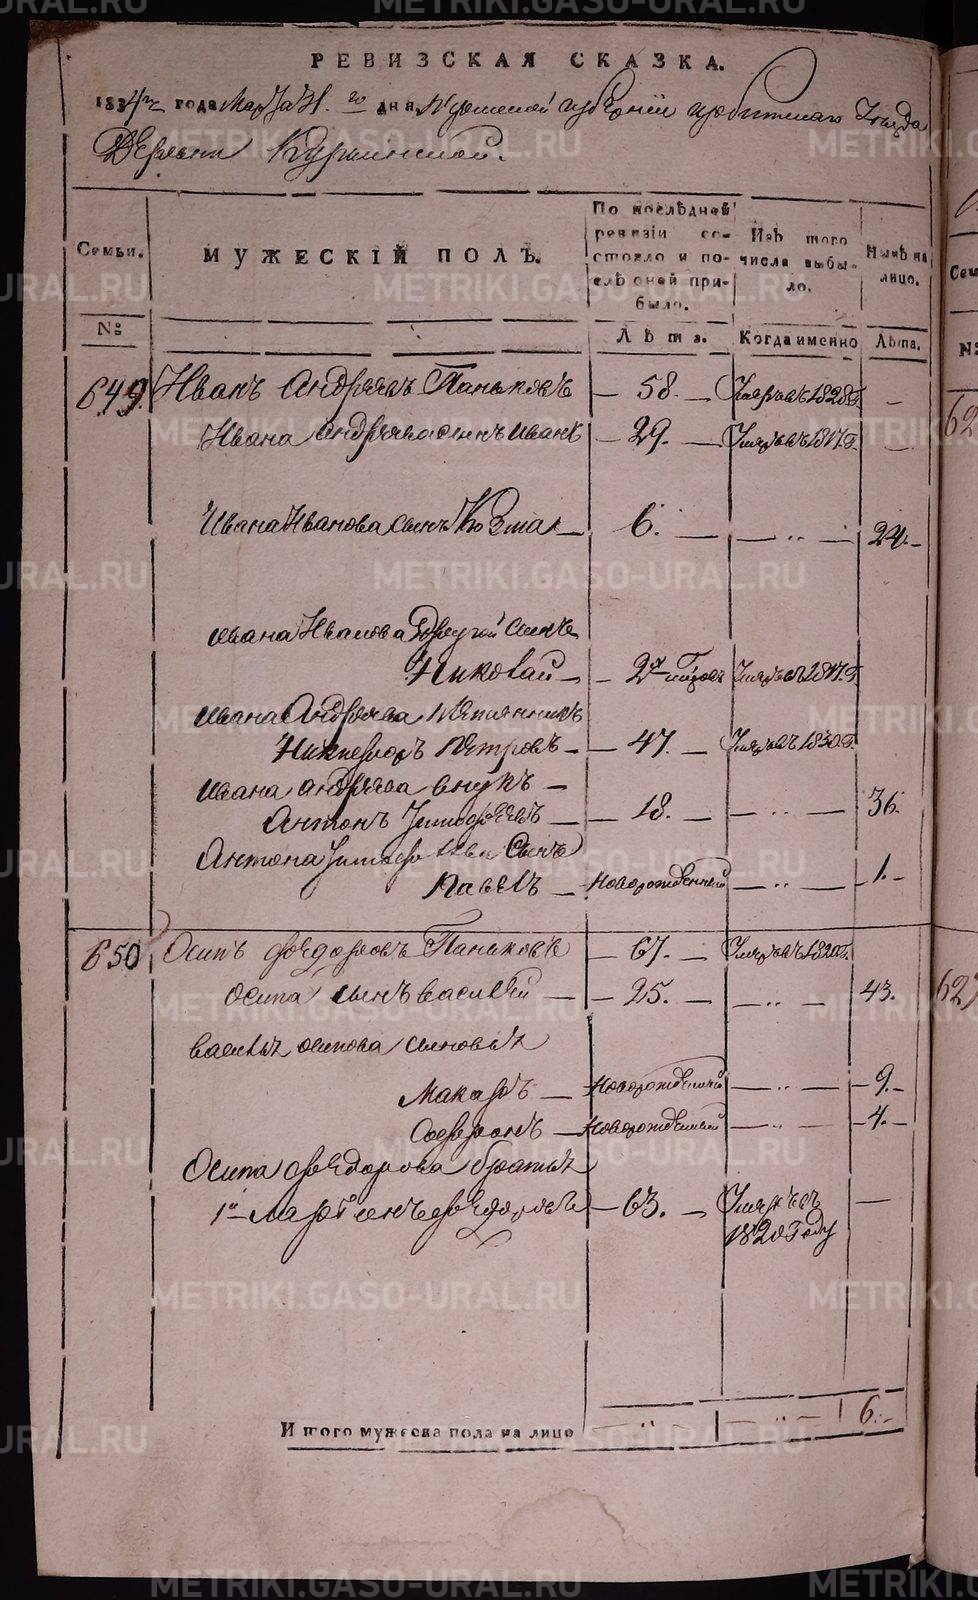 РЕВИЗСКАЯ СКАЗКА.
1834го года Марта 31. го дня, Пермской губернии Ирбитскаго Уезда
Деревни Курьинской.
Семьи.
МУЖЕСКІЙ ПОЛЪ.
По послѣдней ревизіи состояло и послѣ оней прибыло.
Изъ того числа выбыло.
Нынѣ на лицо.
№
Лѣта.
Когда именно
Лѣта.
649. Иванъ Андреевъ Паньковъ — 58. — Умеръ въ 1828 г. —
Ивана Андреева сынъ Иванъ — 29. — Умеръ въ 1817 г. —
Ивана Иванова сынъ Козма — 6. — — „ — 24. —
Ивана Иванова Другой сынъ
Николай — 2х Умеръ въ 1817. г
Ивана Андреева племянникъ
Никифоръ Петровъ — 47. — Умеръ въ 1830 г.
Ивана Андреева внукъ —
Антонъ Тимофеевъ — 18. — — „ — 36.
Антона Тимофеева Сынъ
Павелъ — Новорожденный — „ — 1. —
650 Осипъ Федоровъ Паньковъ — 67. — Умеръ въ 1820 г.
Осипа сынъ Василий — 25. — — „ — 43.
Василья Осипова сыновья
Макаръ — Новорожденный — „ — 9. —
Софронъ — Новорожденный — „ — 4. —
Осипа Федорова братья
1й Мартенъ Федоровъ — 63. — Умеръ въ —
1820 Году
Итого мужеска пола на лицо — „ — — „ — 6. —
Сем
№
62
627
METRIKI.GASO-URAL.RU